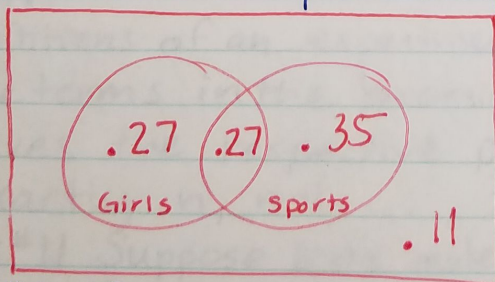 .27 .27 .35
Girls sports
.11